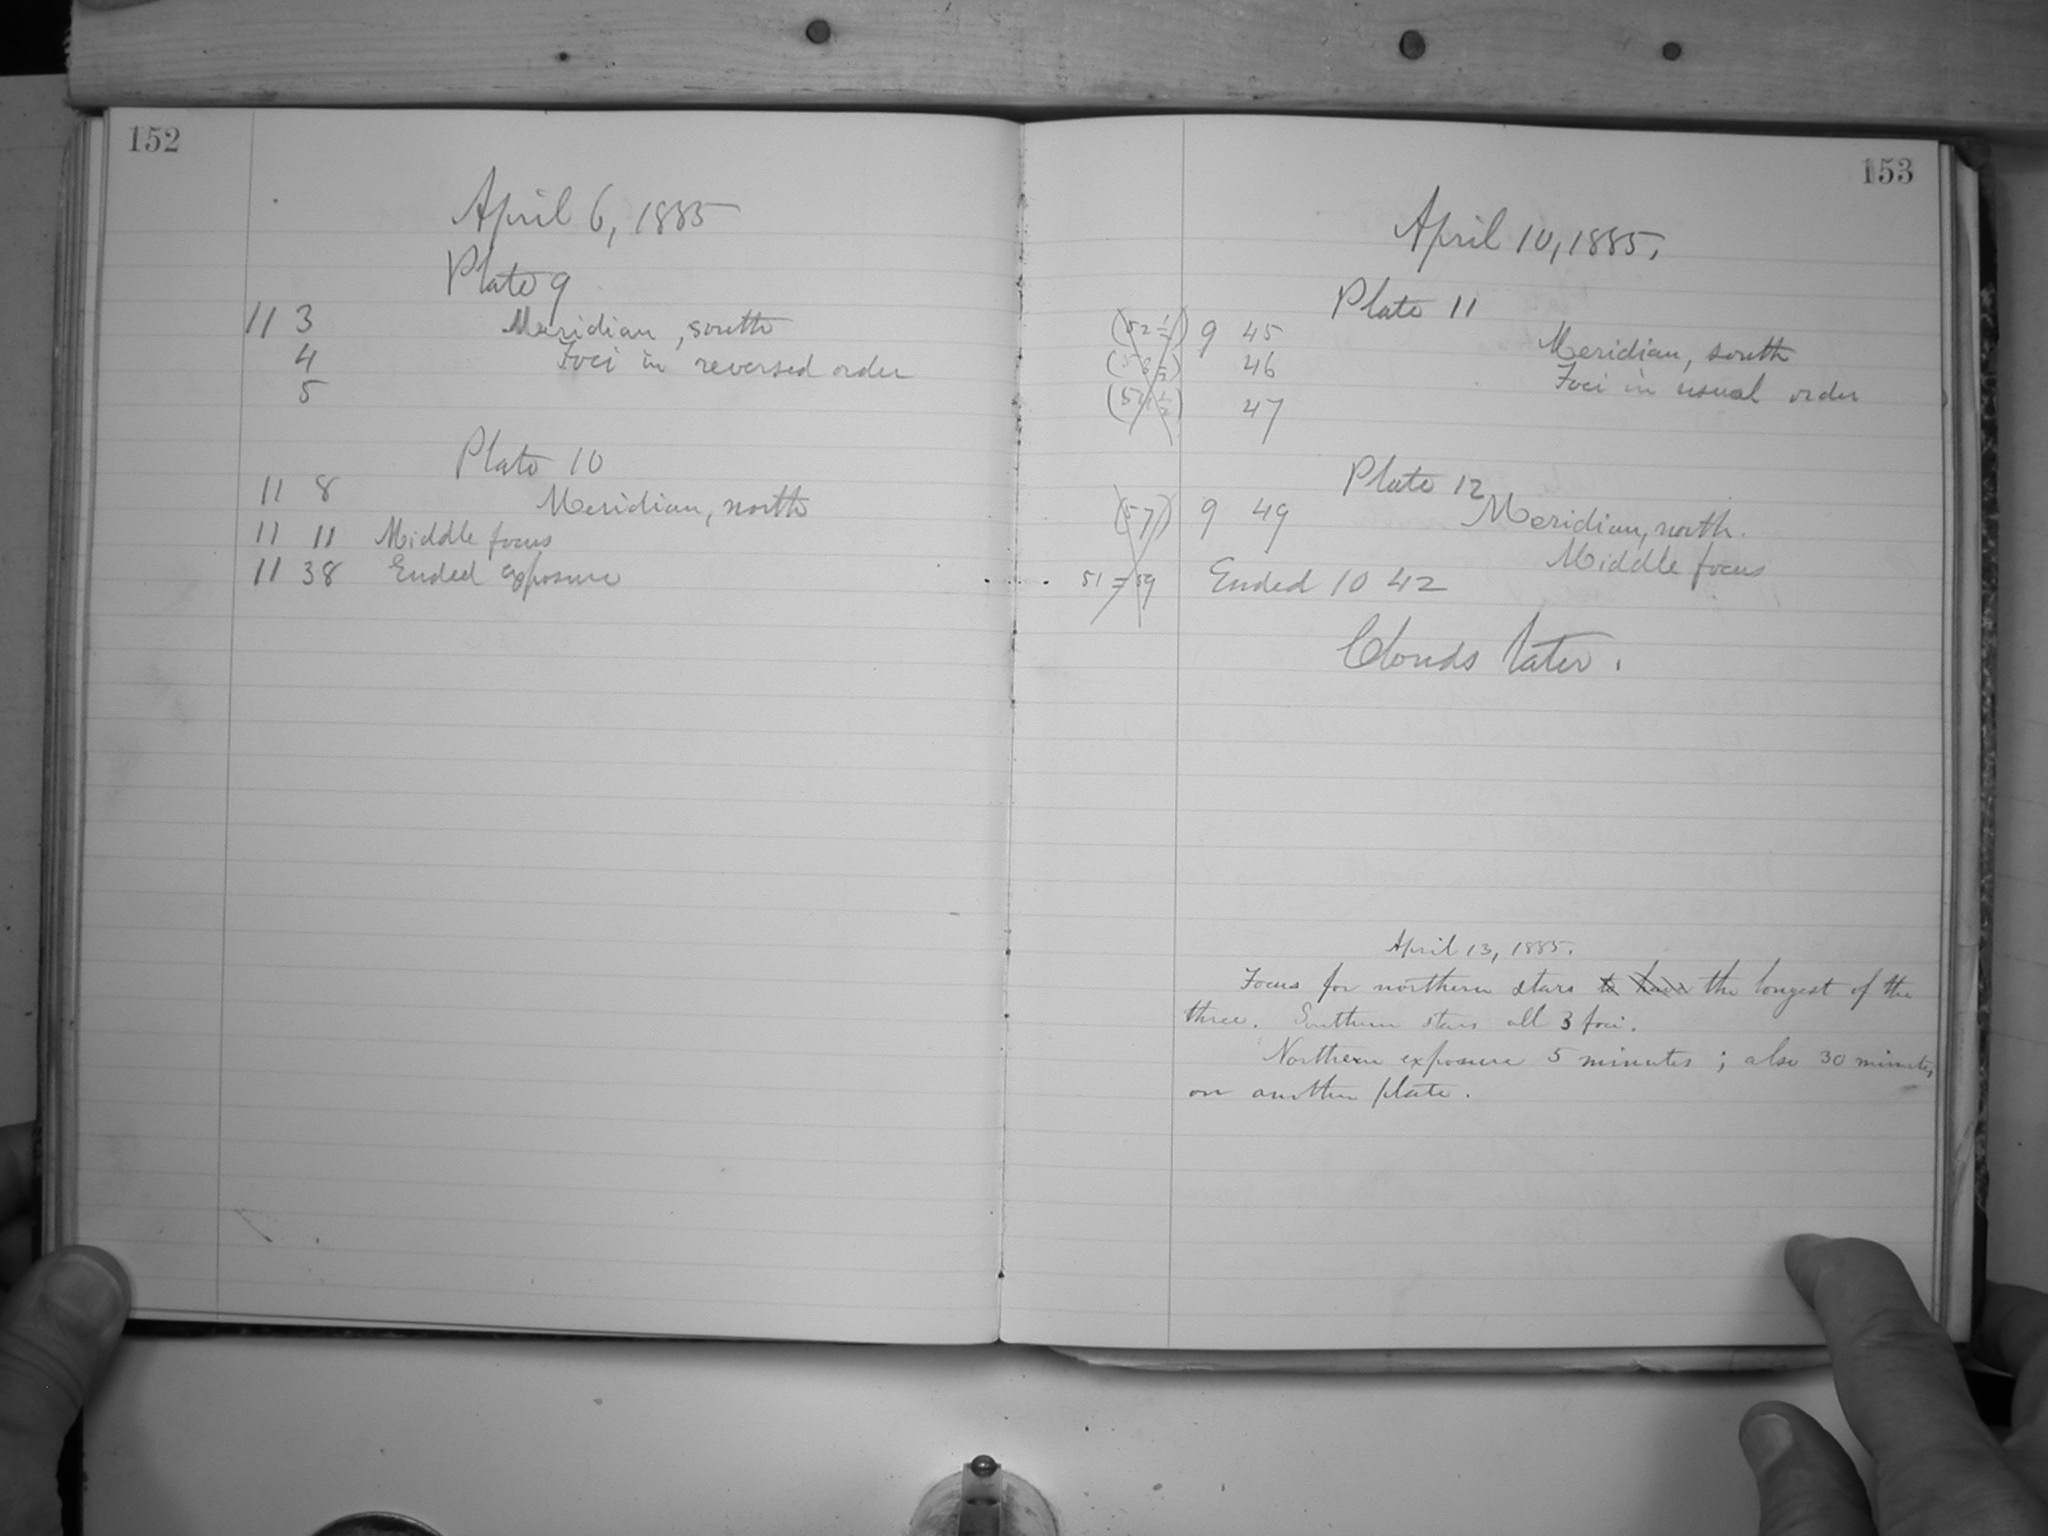 152
April 6, 1885
Plate 9
11 3 Meridian, south
4 Foci in reversed order
5
Plate 10
11 8 Meridian, north
11 11 Middle focus
11 38 Ended exposure
153
April 10, 1885.
Plate 11
(52½) 9 45 Meridian, south
46 Foci in usual order
47
Plate 12
(57) 9 49 Meridian, north.
Middle focus
51 = 59 Ended 10 42
Clouds later.
April 13, 1885.
Focus for northern stars to have the longest of the
three. Southern stars all 3 foci.
Northern exposure 5 minutes; also 30 minutes
on another plate.